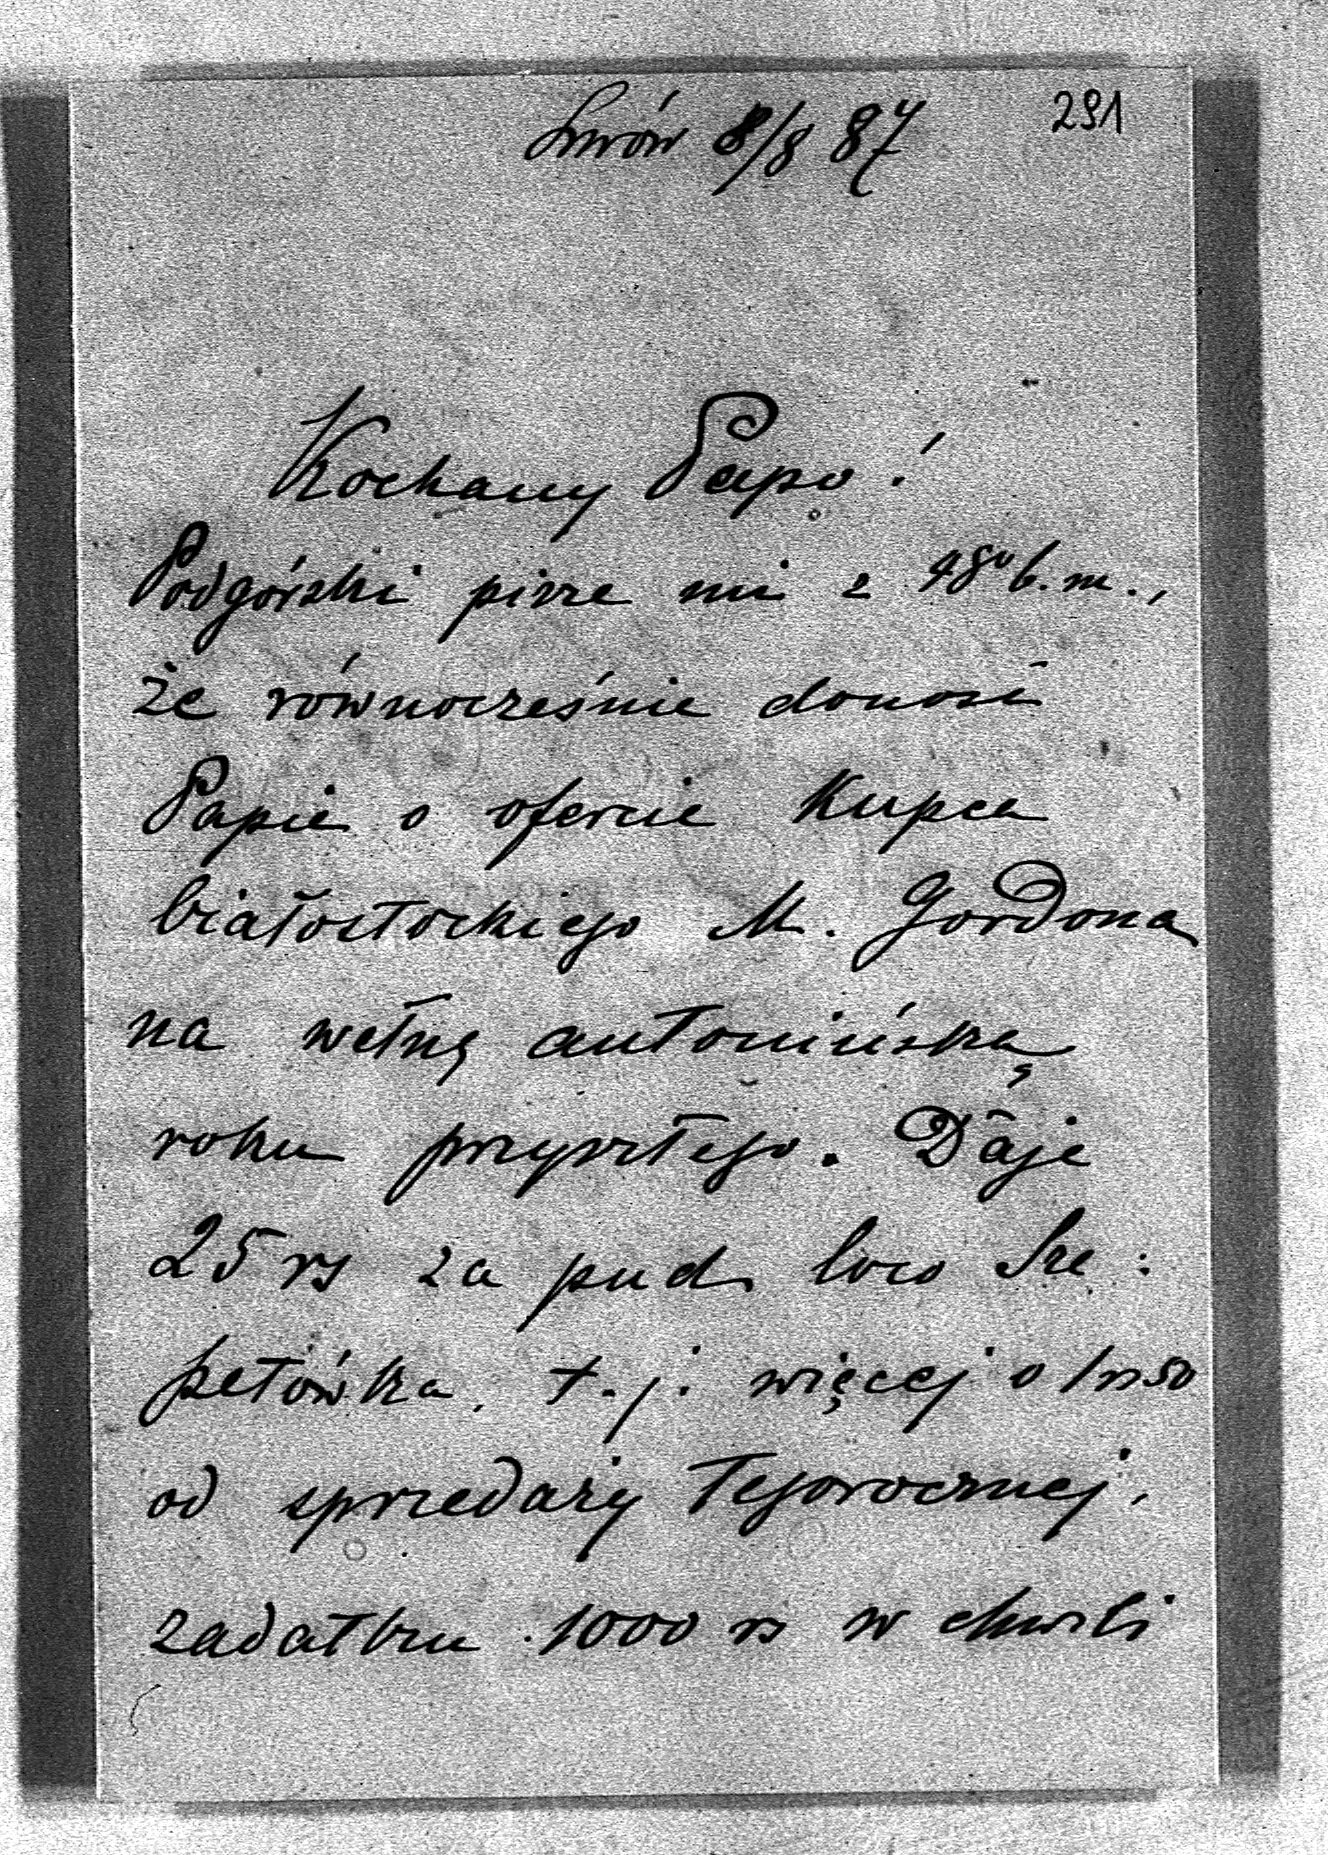 Lwów 8/8 87
291
Kochany Papo!
Podgórski pisze mi z b. m.,
że równocześnie donosi
Papie o ofercie Kupca
białostockiego M. Gordona
na wełnę antonińską
roku przyszłego. Daje
25 rs za pud loco Sze:
petówka, t. j. więcej o 1 rs 50
od sprzedaży tegorocznej,
zadatku 1000 rs w chwili